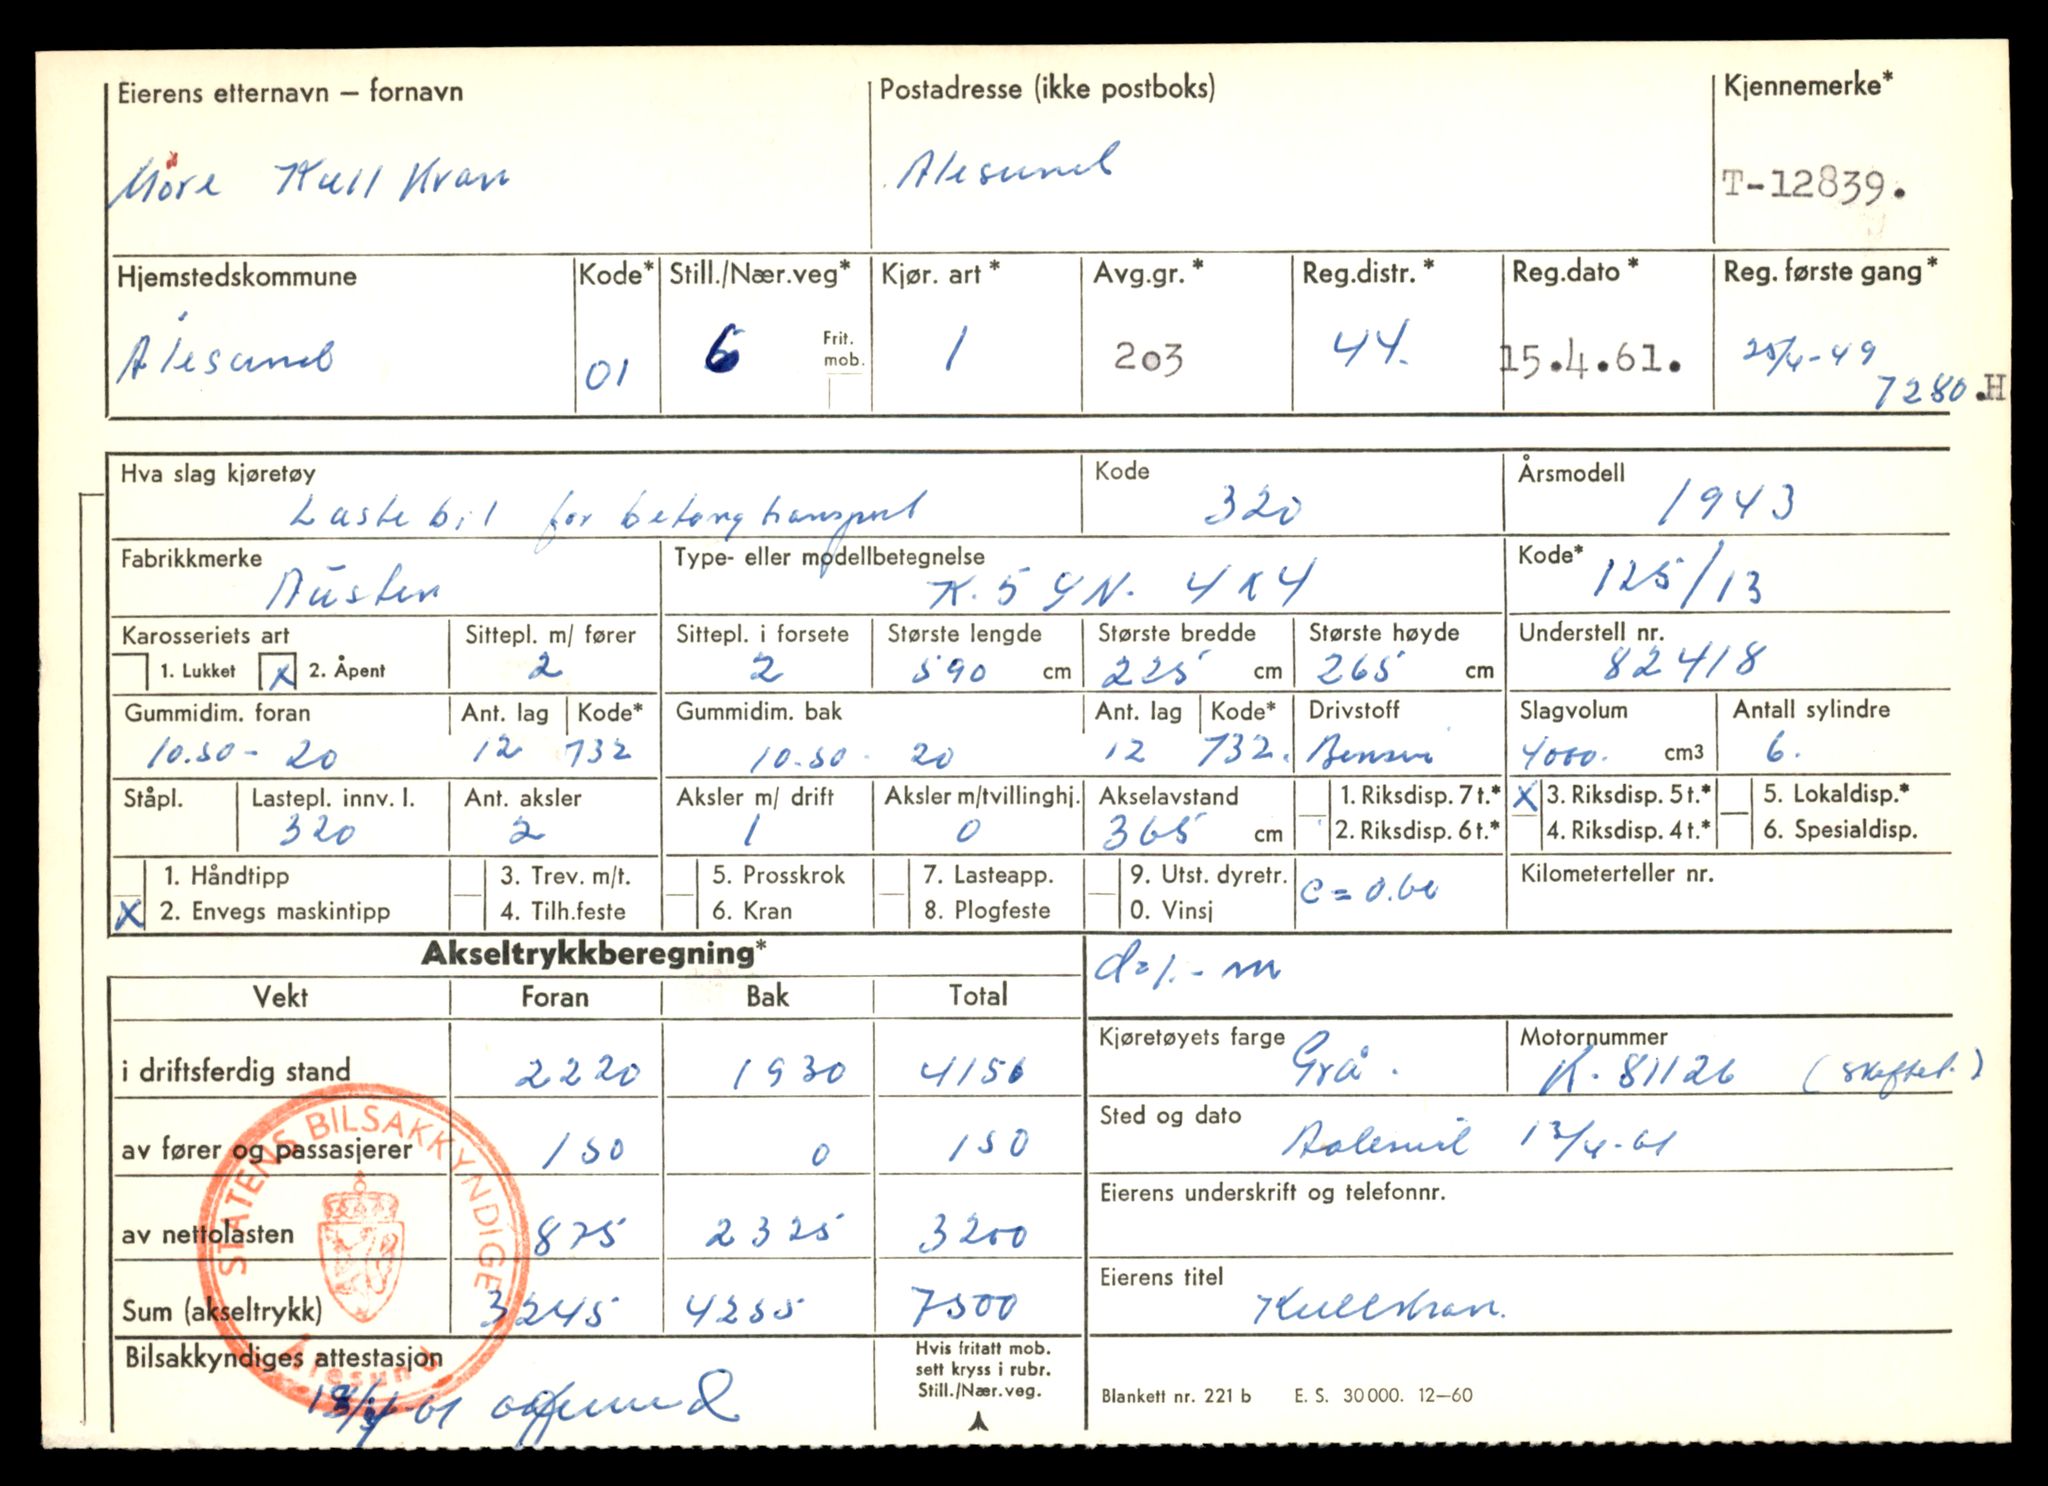 Eierens etternavn – fornavn Postadresse (ikke postboks) Kjennemerke*
Möre Kull Kran Alesund T-12839.
Hjemstedskommune Kode* Still./Nær.veg* Kjør. art * Avg.gr. * Reg.distr. * Reg.dato * Reg. første gang*
Ålesund 01 6 Frit. mob. 1 203 44. 15.4.61. 25/4-49
7280.H
Hva slag kjøretøy Kode Årsmodell
Lastebil for betongtransport 320 1943
Fabrikkmerke Type- eller modellbetegnelse Kode*
Austen K.5 YN. 4x4 125/13
Karosseriets art Sittepl. m/ fører Sittepl. i forsete Største lengde Største bredde Største høyde Understell nr.
1. Lukket X 2. Åpent 2 2 590 cm 225 cm 265 cm 82418
Gummidim. foran Ant. lag Kode* Gummidim. bak Ant. lag Kode* Drivstoff Slagvolum Antall sylindre
10.50-20 12 732 10.50-20 12 732. Bensin 4000. cm3 6.
Ståpl. Lastepl. innv. l. Ant. aksler Aksler m/ drift Aksler m/tvillinghj. Akselavstand 1. Riksdisp. 7 t.* X 3. Riksdisp. 5 t.* 5. Lokaldisp.*
320 2 1 0 365 cm 2. Riksdisp. 6 t.* 4. Riksdisp. 4 t.* 6. Spesialdisp.
1. Håndtipp 3. Trev. m/t. 5. Prosskrok 7. Lasteapp. 9. Utst. dyretr. c = 0.60 Kilometerteller nr.
X 2. Envegs maskintipp 4. Tilh.feste 6. Kran 8. Plogfeste 0. Vinsj
Akseltrykkberegning* d=1.- m
Vekt Foran Bak Total
Kjøretøyets farge Motornummer
i driftsferdig stand 2220 1930 4150 Grå. K. 81126
Sted og dato
av fører og passasjerer 150 0 150 Aalesund 13/4-61
Eierens underskrift og telefonnr.
av nettolasten 875 2325 3200
Eierens titel
Sum (akseltrykk) 3245 4255 7500 Kullkran.
Bilsakkyndiges attestasjon Hvis fritatt mob.
sett kryss i rubr.
Still./Nær.veg.
Blankett nr. 221 b E. S. 30 000. 12–60
STATENS BILSAKKYNDIGE
Ålesund